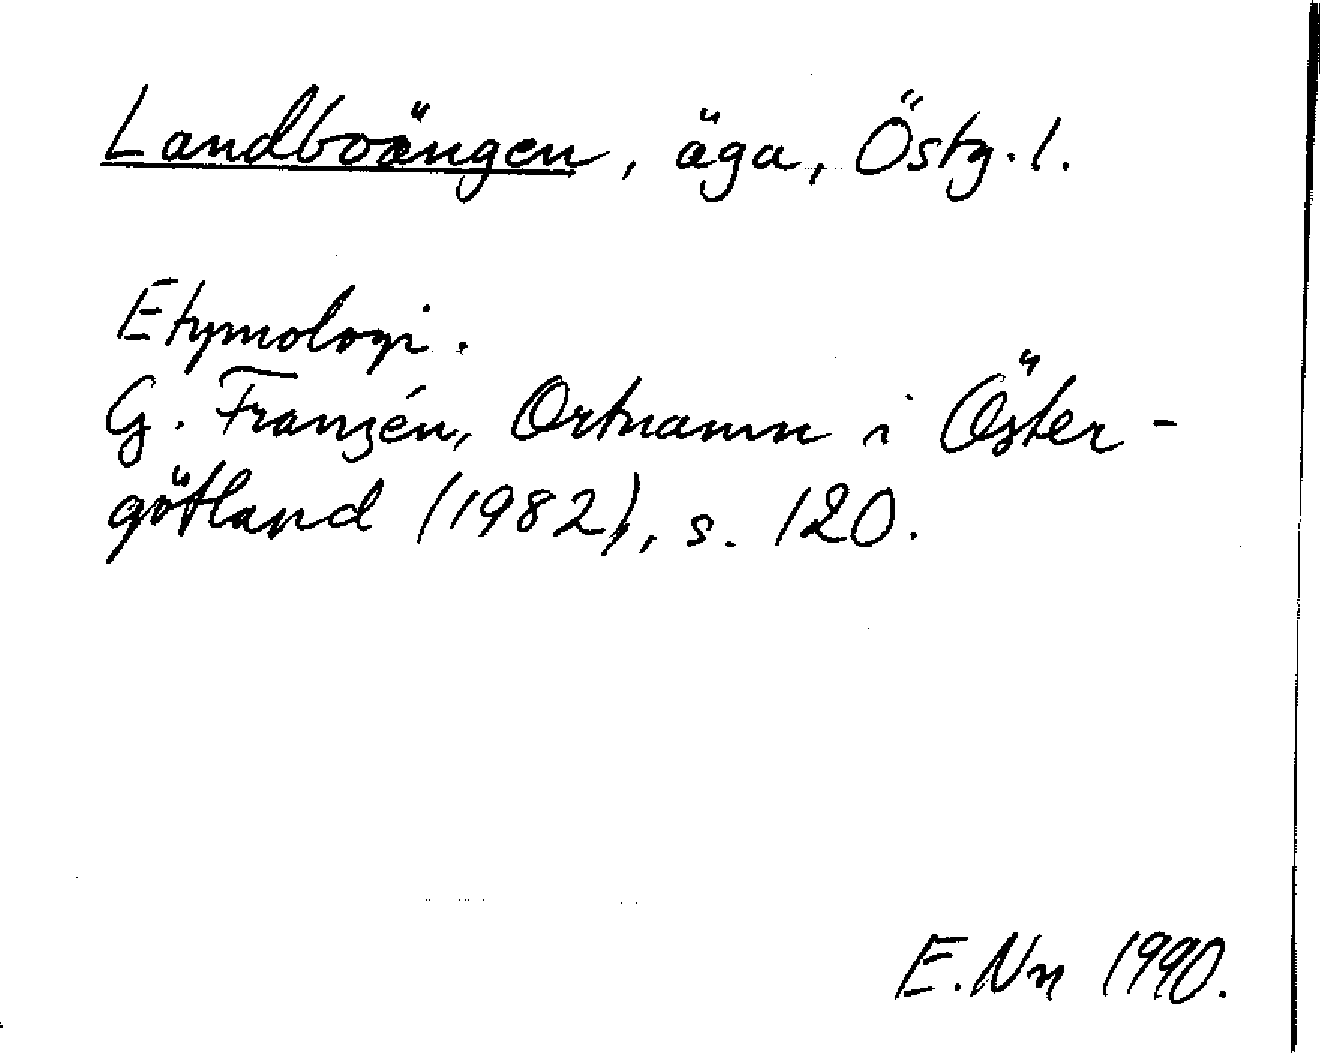 Landboängen, äga, Östg. l.
Etymologi.
G. Franzén, Ortnamn i Öster-
götland (1982), s. 120.
E. Nn 1990.